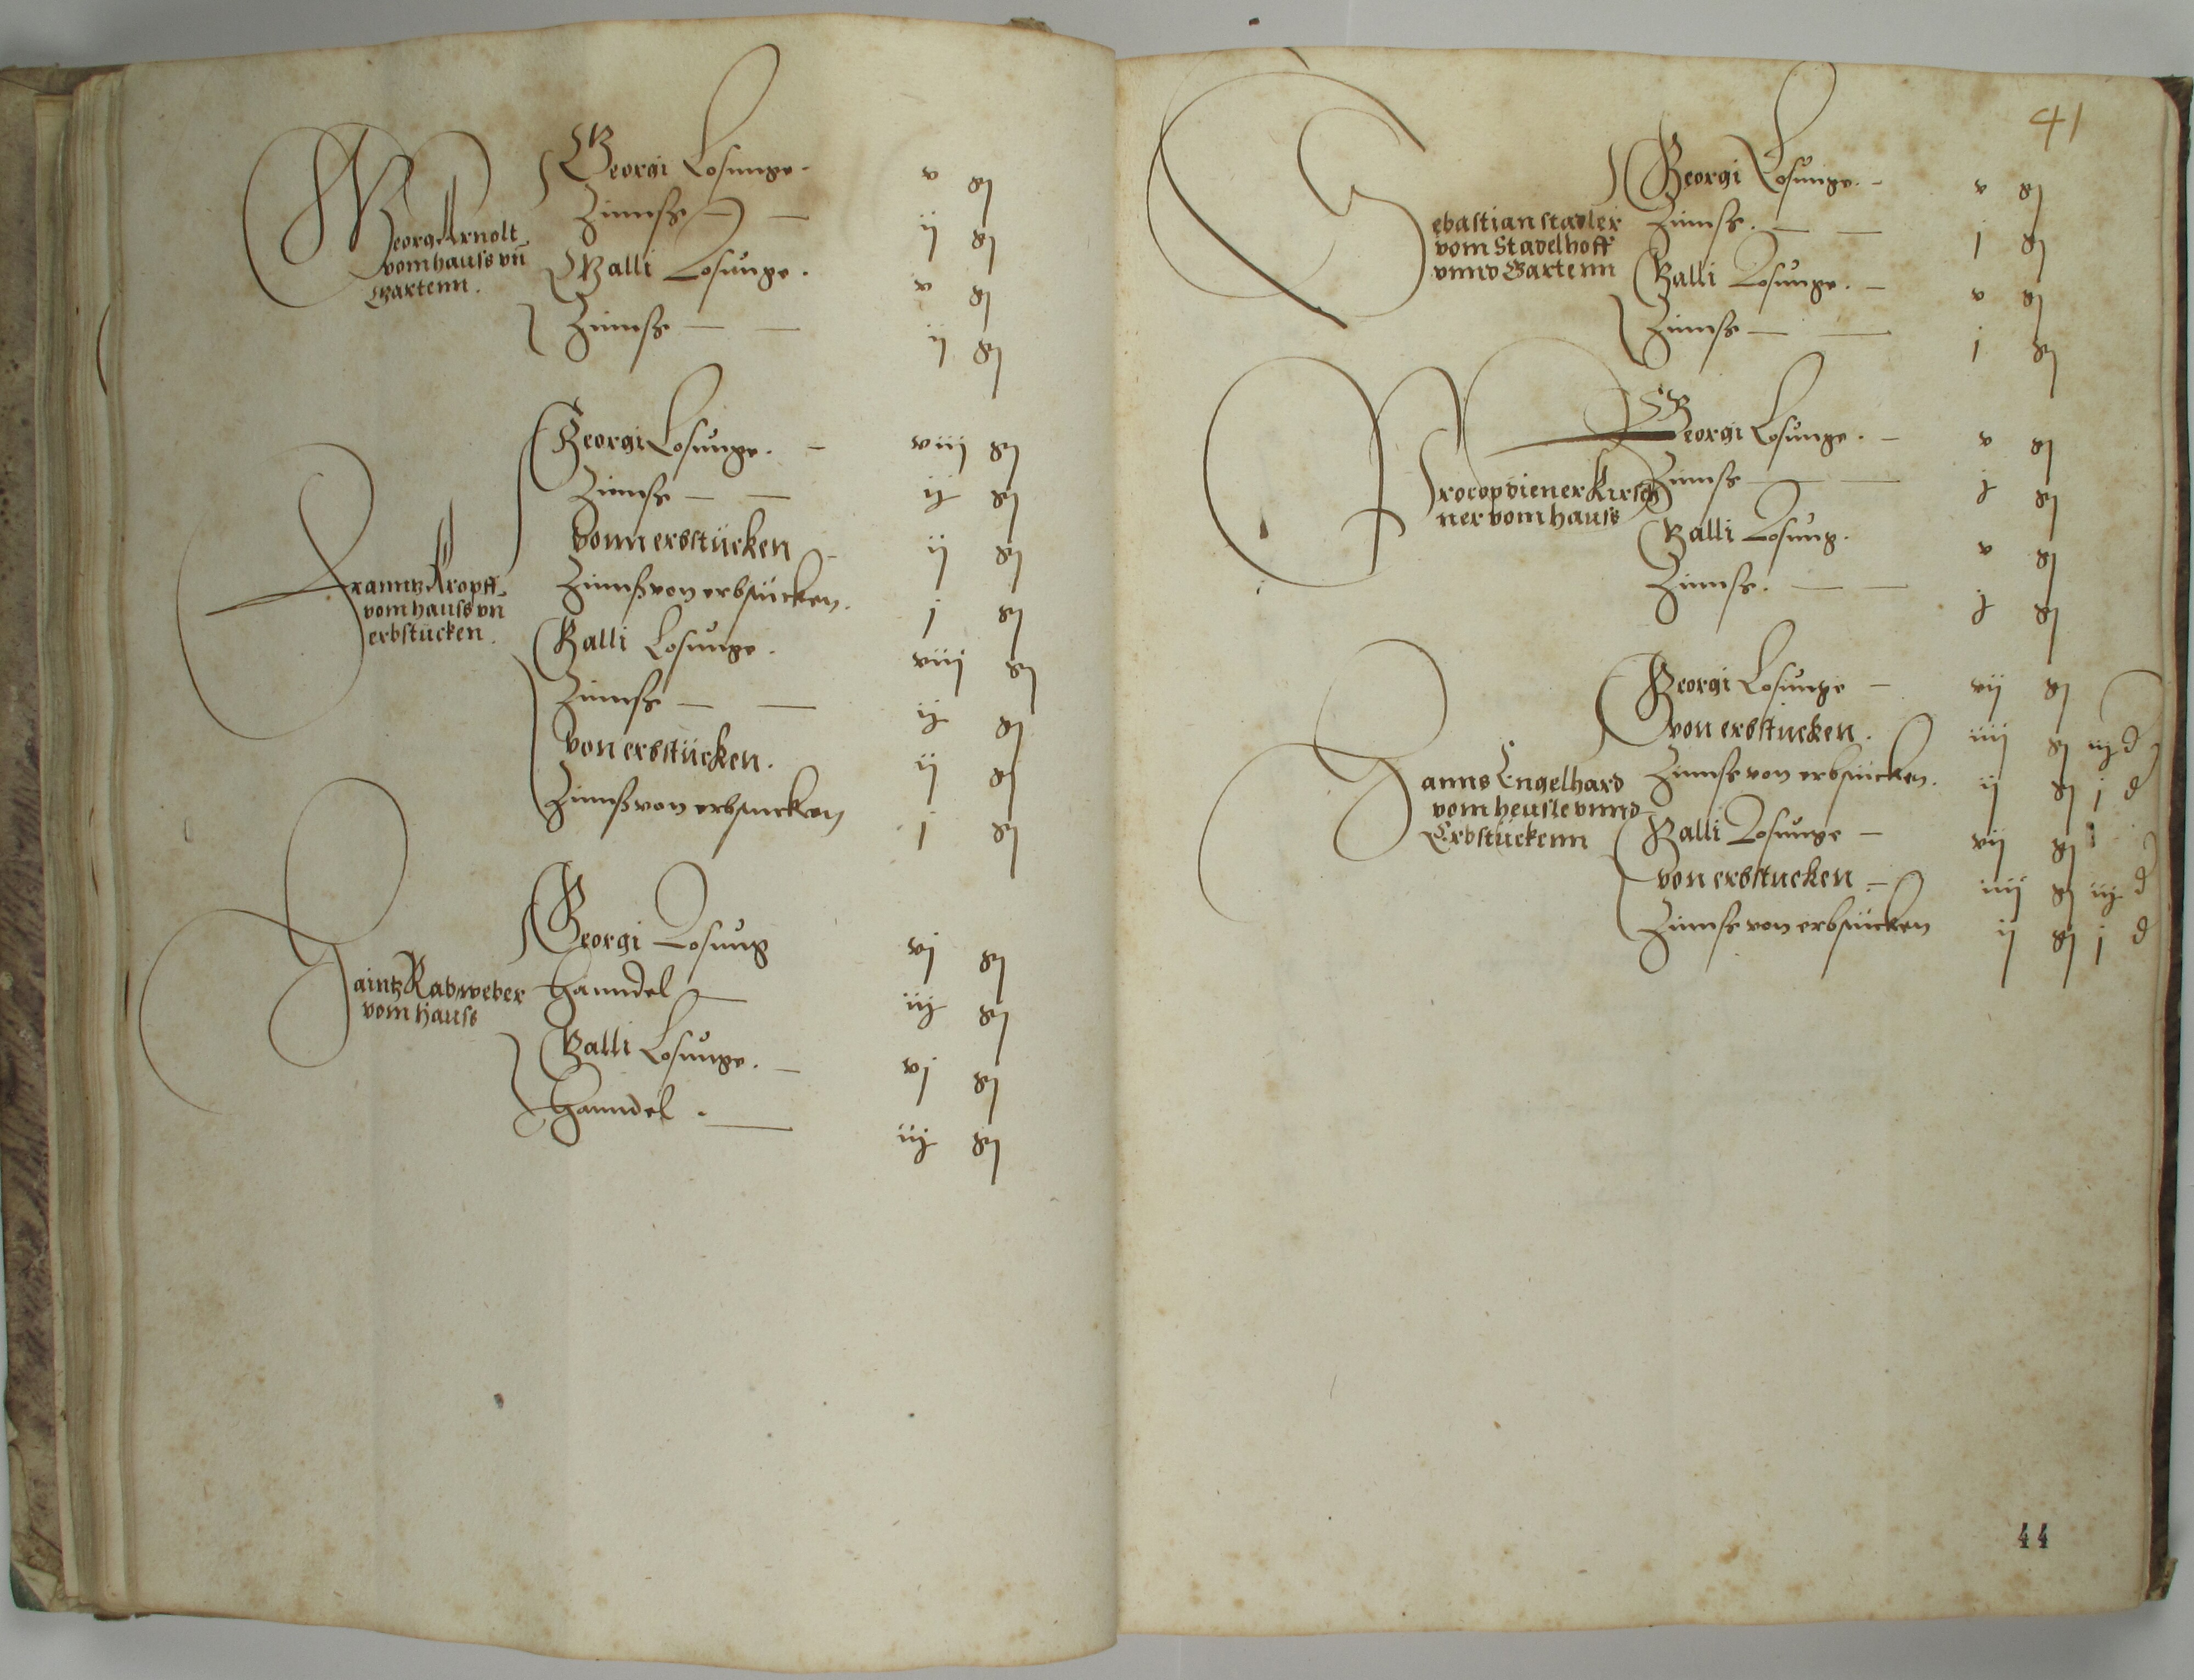 Georg Arnolt
vom hauss vn̄
Gartenn.
Georgi Losunge. v gl
Zinnse ij gl
Galli Losunge. v gl
Zinnse ij gl
Franntz Kropff
vom hauss vn̄
erbstücken.
Georgi Losunge. viij gl
Zinnse ij gl
vonn erbstücken ij gl
Zinnß von erbstücken. j gl
Galli Losunge. viij gl
Zinnse ij gl
von erbstücken. ij gl
Zinnß von erbstucken j gl
Haintz Radweber
vom hauss
Georgi Losung vj gl
Hanndel iij gl
Galli Losunge. vj gl
Hanndel. iij gl
41
Sebastian stadler
vom Stadelhoff
vnnd Gartenn
Georgi Losunge. v gl
Zinnse. j gl
Galli Losunge. v gl
Zinnse j gl
Procop diener Kirsch
ner vom hauss
Georgi Losunge. v gl
Zinnse j gl
Galli Losung. v gl
Zinnse. j gl
Hanns Engelhard
vom heusle vnnd
Erbstückenn
Georgi Losunge vij gl
von erbstucken. iiij gl iij d
Zinnse von erbstücken. ij gl j d
Galli Losunge vij gl
von erbstucken iiij gl iij d
Zinnse von erbstücken ij gl j d
44